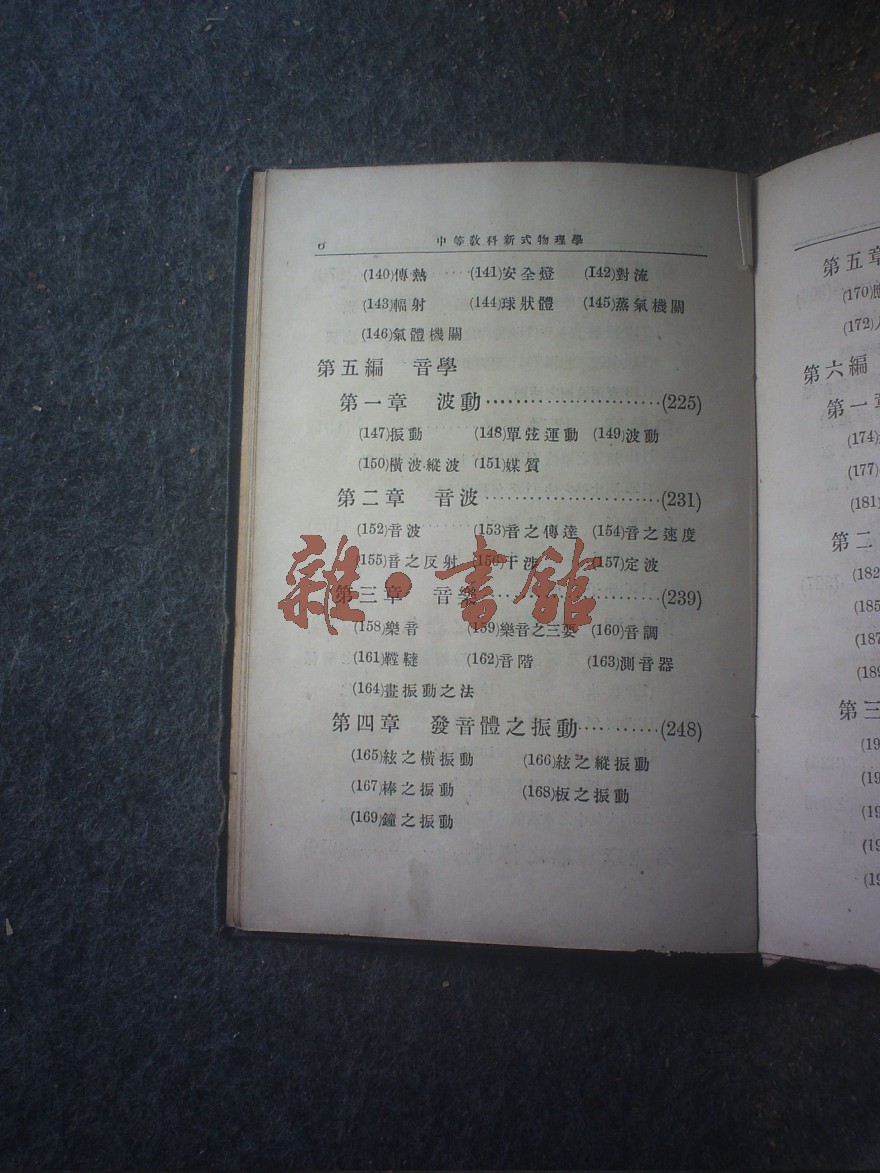 6 中等教科新式物理學
(140)傳熱 (141)安全燈 (142)對流
(143)輻射 (144)球狀體 (145)蒸氣機關
(146)氣體機關
第五編 音學
第一章 波動……………………(225)
(147)振動 (148)單弦運動 (149)波動
(150)橫波縱波 (151)媒質
第二章 音波……………………(231)
(152)音波 (153)音之傳達 (154)音之速度
(155)音之反射 (156)干涉 (157)定波
第三章 音樂……………………(239)
(158)樂音 (159)樂音之三要 (160)音調
(161)鞺鞳 (162)音階 (163)測音器
(164)畫振動之法
第四章 發音體之振動…………(248)
(165)絃之橫振動 (166)絃之縱振動
(167)棒之振動 (168)板之振動
(169)鐘之振動
雜·書館
第五章
(170)
(172)
第六編
第一章
(174)
(177)
(181)
第二
(182
(185
(187
(189
第三
(19
(19
(19
(19
(19